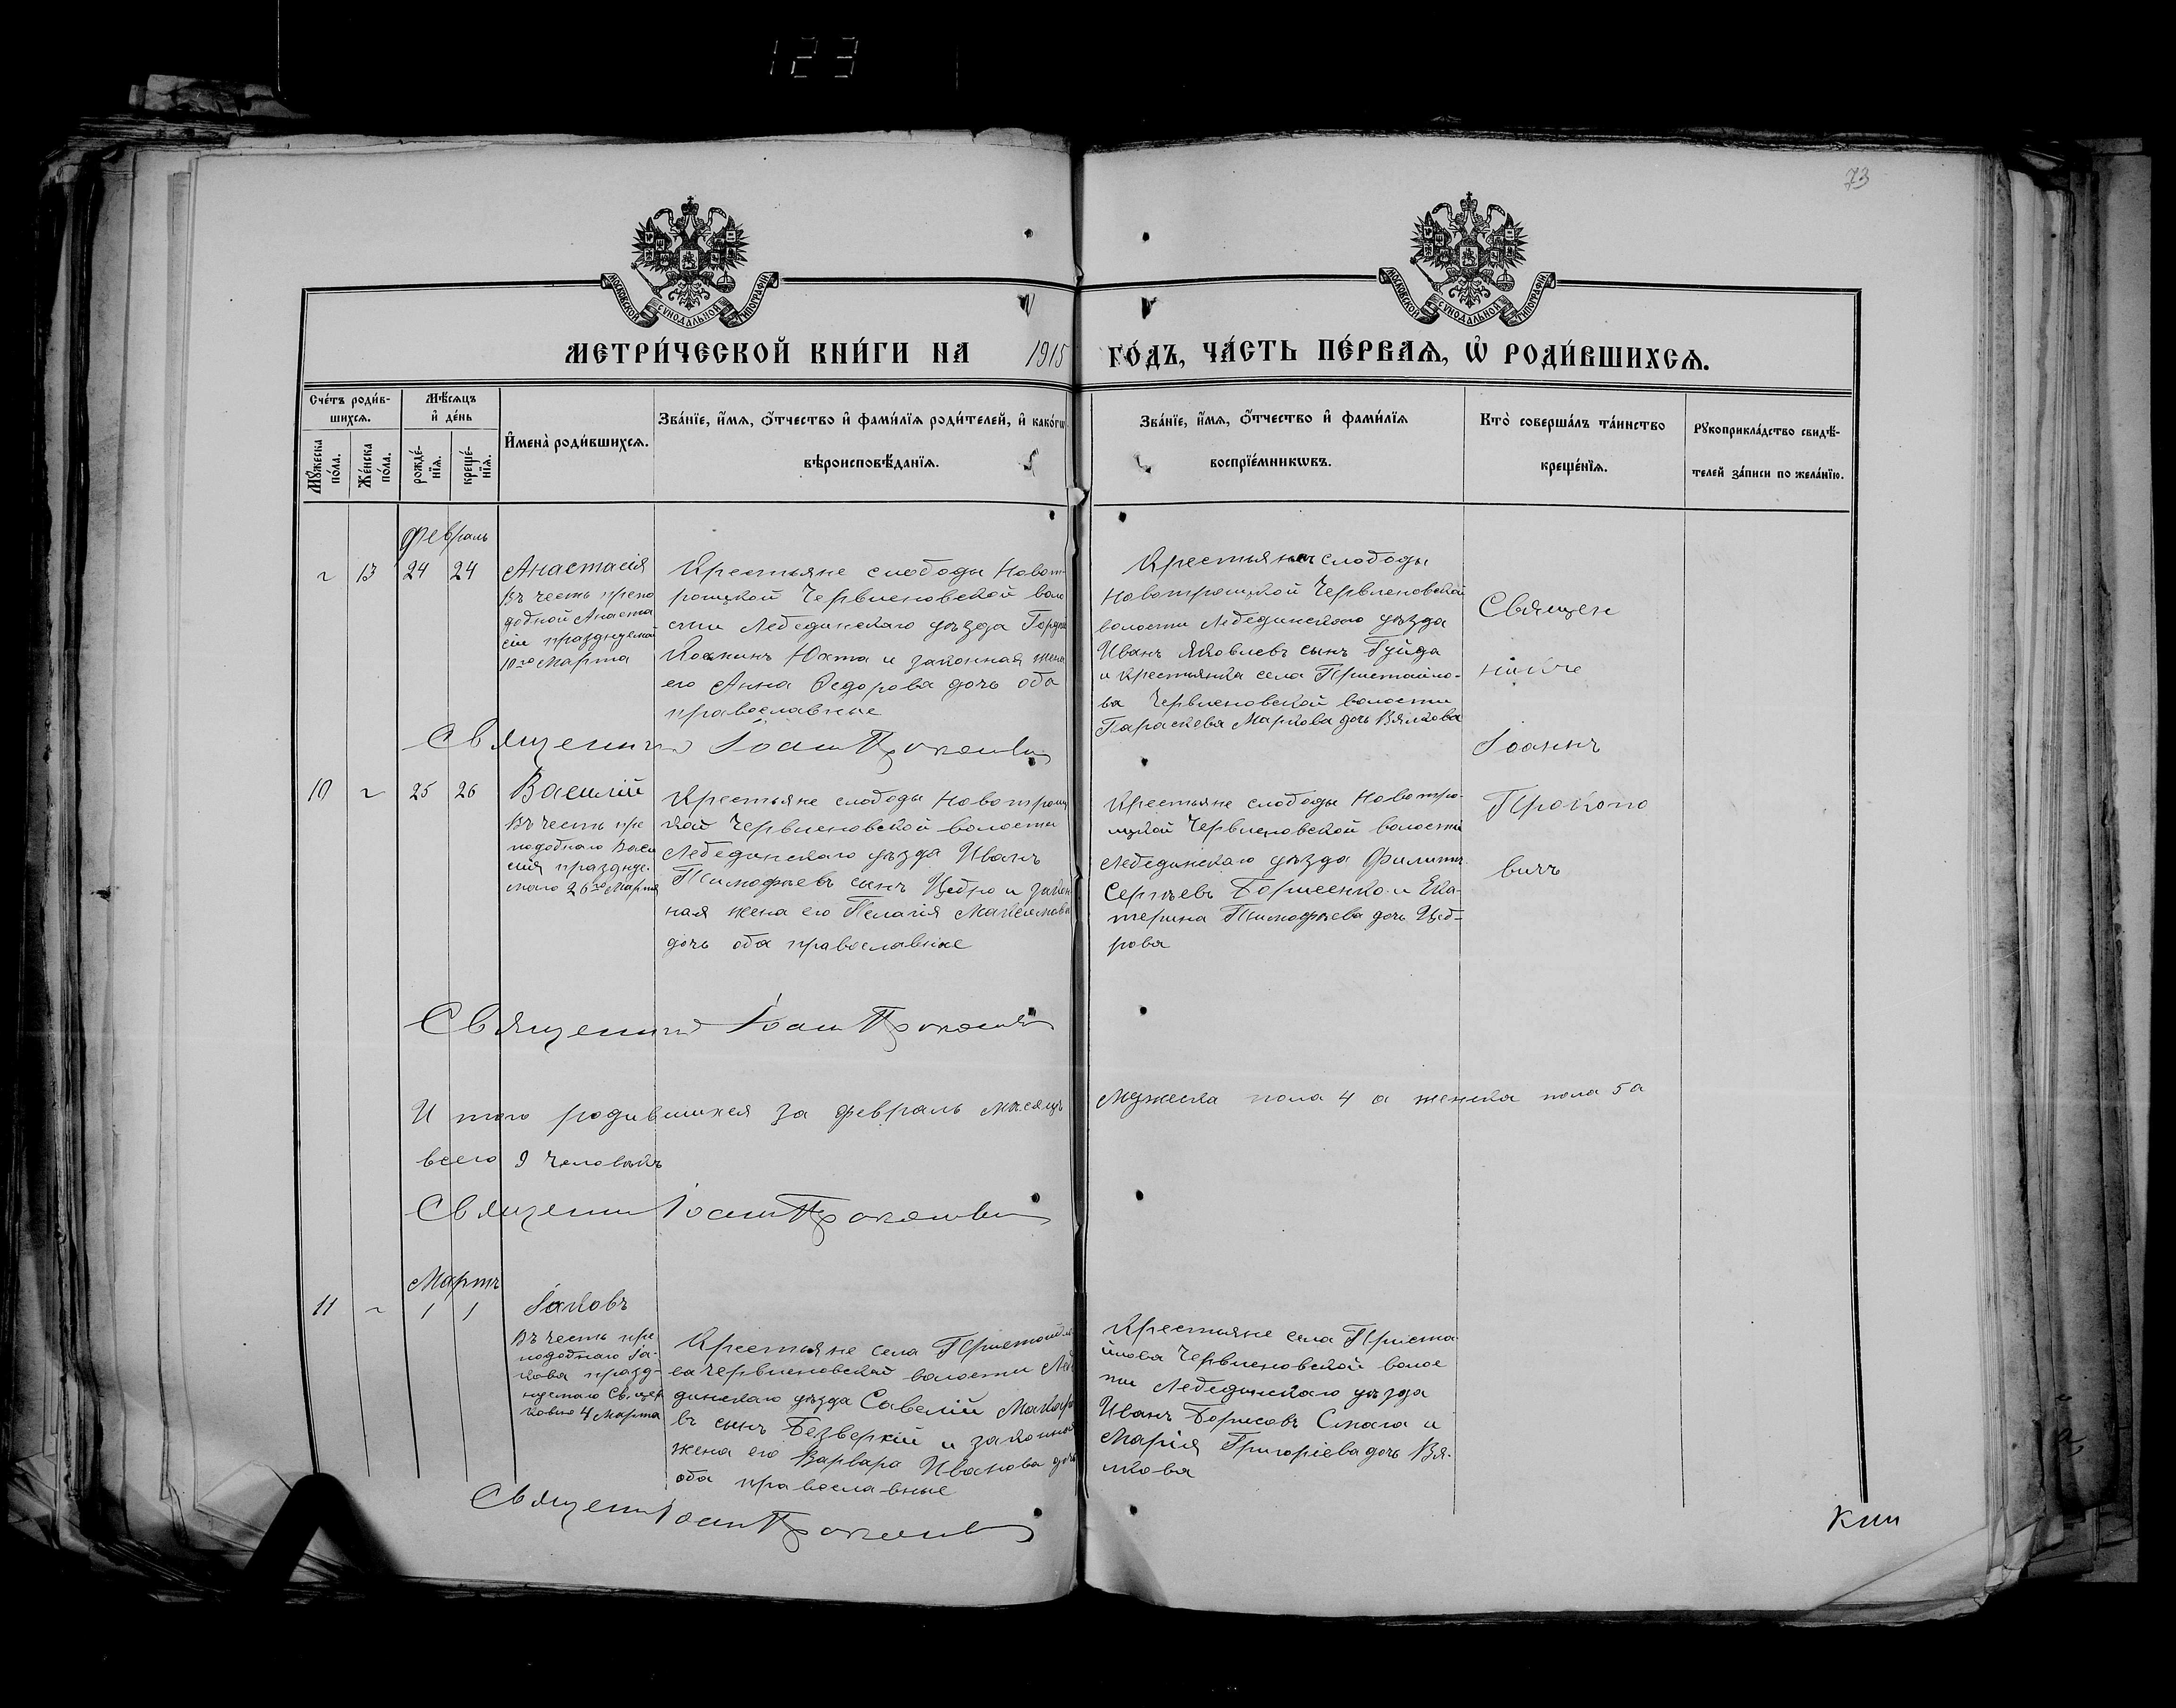 123
73
МОСКОВСКОЙ СѴНОДАЛЬНОЙ ТИПОГРАФІИ
МОСКОВСКОЙ СѴНОДАЛЬНОЙ ТИПОГРАФІИ
МЕТРИ́ЧЕСКОЙ КНИ́ГИ НА 1915 ГО́ДЪ, ЧА́СТЬ ПЕ́РВАѦ, Ѡ҆ РОДИ́ВШИХСѦ.
Сче́тъ роди́в-
шихсѧ.
Мꙋ́жеска по́ла.
Же́нска по́ла.
Мѣ́сѧцъ
и҆ де́нь
рожде́-
нїѧ.
креще́-
нїѧ.
И҆мена̀ роди́вшихсѧ.
Зва́нїе, и҆́мѧ, ѻ҆́тчество и҆ фами́лїѧ роди́телей, и҆ како́гѡ
вѣроисповѣ́данїѧ.
Зва́нїе, и҆́мѧ, ѻ҆́тчество и҆ фами́лїѧ
воспрїе́мникѡвъ.
Кто̀ соверша́лъ та́инство
креще́нїѧ.
Рꙋкоприкла́дство свидѣ́-
телей за́писи по жела́нїю.
Февраль
13 24 24
Анастасія
Въ честь препо
добной Анаста
сіи празднуемой
10го Марта
Крестьяне слободы Новот-
роицкой Червленовской воло
сти Лебединскаго уѣзда Гордій
Юхта и законная жена
его Анна Ѳедорова дочь оба
православные
Крестьянинъ слободы
Новотроицкой Червленовской
волости Лебединскаго уѣзда
Иванъ Яковлевъ сынъ Гуйда
и крестьянка села Пристайло-
ва Червленовской волости
Параскева Маркова дочь Вялкова
Священ
никъ
Іоаннъ
Прокопо
вичъ
Священникъ Іоаннъ Прокоповичъ
10 25 26
Василій
Въ честь пре
подобнаго Васи
лія праздну-
маго 26го Марта
Крестьяне слободы Новотроиц
кой Червленовской волости
Лебединскаго уѣзда Иванъ
Тимофѣевъ сынъ Цебро и закон
ная жена его Пелагія Максимова
дочь оба православные
Крестьяне слободы Новотро-
ицкой Червленовской волости
Лебединскаго уѣзда Филиппъ
Сергѣевъ Борисенко и Ека-
терина Тимофѣева дочь Цеб-
рова
Священникъ Іоаннъ Прокоповичъ
И того родившихся за февраль мѣсяцъ мужеска пола 4 а женска пола 5 а
всего 9 человѣкъ
Священникъ Іоаннъ Прокоповичъ
Мартъ
11 1 1
Іаковъ
Въ честь пре
подобнаго Іа-
кова празд-
нуемаго Св. цер
ковію 4 Марта
Крестьяне села Пристайло
ва Червленовской волости Лебе
динскаго уѣзда Савелій Макаро
въ сынъ Безверхій и законная
жена его Варвара Иванова дочь
оба православные
Крестьяне села Приста
йлова Червленовской волос
ти Лебединскаго уѣзда
Иванъ Борисовъ Смага и
Марія Григоріева дочь Вя-
лкова
Священникъ Іоаннъ Прокоповичъ